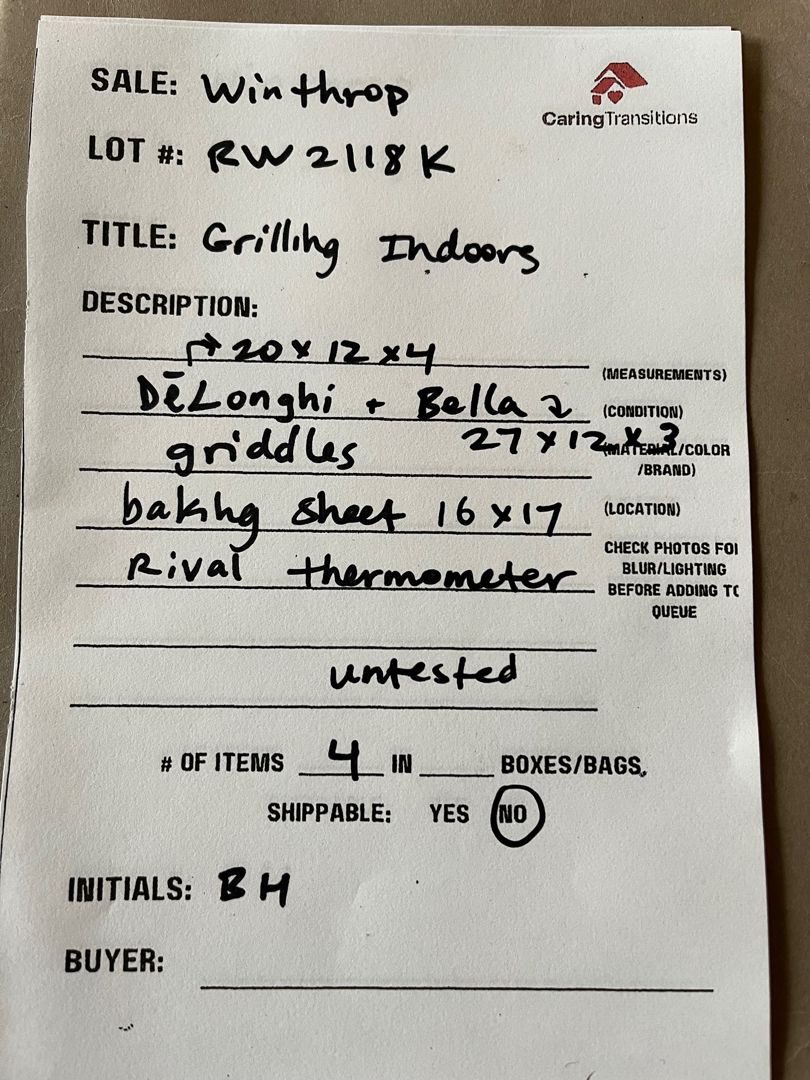 SALE: Winthrop
CaringTransitions
LOT #: RW2118K
TITLE: Grilling Indoors
DESCRIPTION:
↱ 20 x 12 x 4
(MEASUREMENTS)
DēLonghi + Bella ↴
(CONDITION)
griddles 27 x 12 x 3
(MATERIAL/COLOR
/BRAND)
baking sheet 16 x 17
(LOCATION)
Rival thermometer
CHECK PHOTOS FOR
BLUR/LIGHTING
BEFORE ADDING TO
QUEUE
untested
# OF ITEMS 4 IN ____ BOXES/BAGS.
SHIPPABLE: YES NO
INITIALS: BH
BUYER: